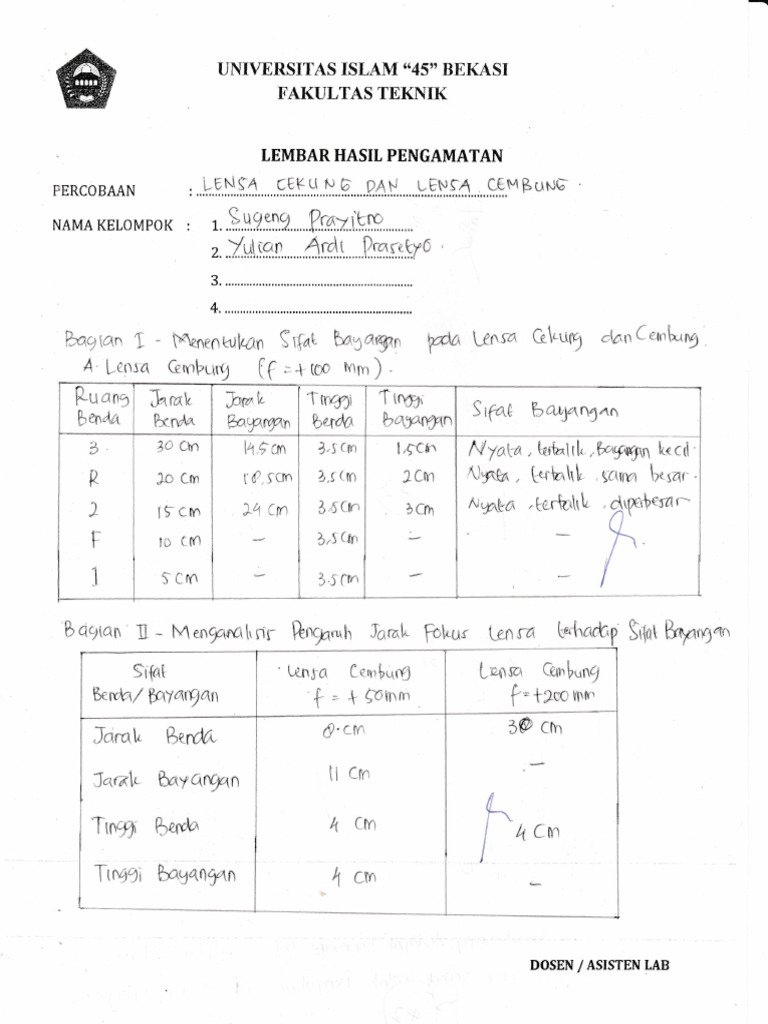 UNIVERSITAS ISLAM “45” BEKASI
FAKULTAS TEKNIK
LEMBAR HASIL PENGAMATAN
PERCOBAAN : LENSA CEKUNG DAN LENSA CEMBUNG.
NAMA KELOMPOK : 1. Sugeng Prayitno
2. Yulian Ardi Prasetyo.
3. ......................................................
4. ......................................................
Bagian I - Menentukan Sifat Bayangan pada Lensa Cekung dan Cembung.
A. Lensa Cembung (f = +100 mm).
Ruang Benda | Jarak Benda | Jarak Bayangan | Tinggi Benda | Tinggi Bayangan | Sifat Bayangan
3 | 30 cm | 14.5 cm | 3.5 cm | 1.5 cm | Nyata, terbalik, Bayangan kecil.
R | 20 cm | 18,5 cm | 3,5 cm | 2 cm | Nyata, terbalik, sama besar.
2 | 15 cm | 24 cm | 3.5 cm | 3 cm | Nyata, terbalik, diperbesar
F | 10 cm | – | 3,5 cm | – | –
1 | 5 cm | – | 3.5 cm | – | –
Bagian II - Menganalisis Pengaruh Jarak Fokus Lensa terhadap Sifat Bayangan
Sifat Benda/Bayangan | Lensa Cembung f = +50mm | Lensa Cembung f = +200 mm
Jarak Benda | 8 cm | 30 cm
Jarak Bayangan | 11 cm | –
Tinggi Benda | 4 cm | 4 cm
Tinggi Bayangan | 4 cm | –
DOSEN / ASISTEN LAB